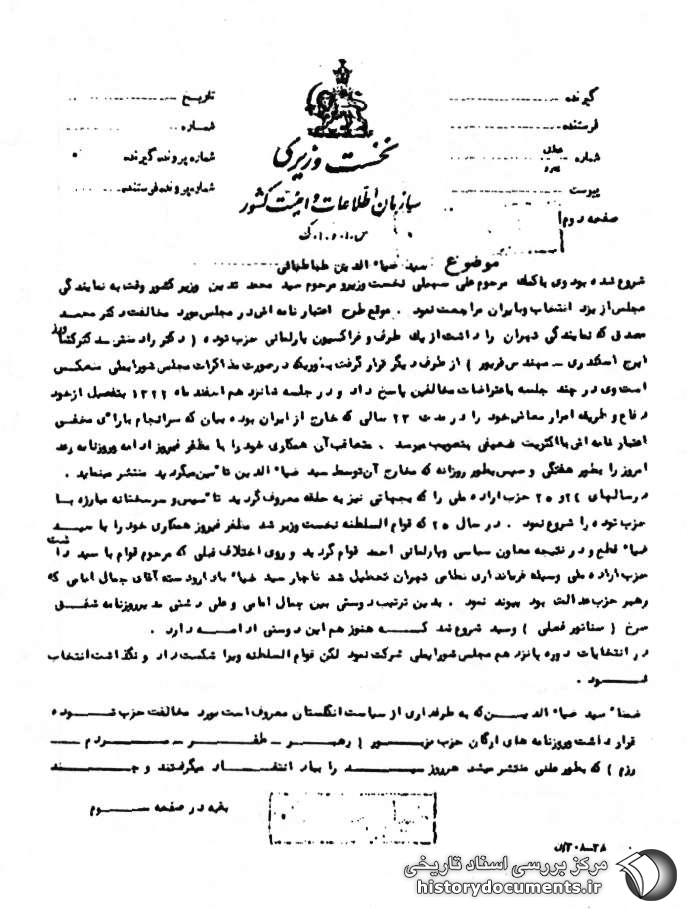 گیرنده
فرستنده
شماره
پیوست
تاریخ
شماره
شماره پرونده گیرنده
شماره پرونده فرستنده
نخست وزیری
سازمان اطلاعات و امنیت کشور
س.ا.و.ا.ک
صفحه دوم
موضوع سید ضیاء الدین طباطبائی
شروع شده بود وی باکمک مرحوم علی سهیلی نخست وزیر و مرحوم سید محمد تدین وزیر کشور وقت به نمایندگی
مجلس از یزد انتخاب و بایران مراجعت نمود . موقع طرح اعتبار نامه اش در مجلس مورد مخالفت دکتر محمد
مصدق که نمایندگی تهران را داشت از یک طرف و فراکسیون پارلمانی حزب توده ( دکتر رادمنش ــ دکتر کشاورز
ایرج اسکندری ــ مهندس فریور ) از طرف دیگر قرار گرفت بطوریکه در صورت مذاکرات مجلس شورایملی منعکس
است وی در چند جلسه باعتراضات مخالفین پاسخ داد و در جلسه شانزدهم اسفند ماه ۱۳۲۲ بتفصیل از خود
دفاع و طریقه امرار معاش خود را در مدت ۲۳ سالی که خارج از ایران بوده بیان که سرانجام با رای مخفی
اعتبار نامه اش با اکثریت ضعیفی بتصویب میرسد . متعاقب آن همکاری خود را با مظفر فیروز ادامه و روزنامه رعد
امروز را بطور هفتگی و سپس بطور روزانه که مخارج آن توسط سید ضیاء الدین تأمین میگردید منتشر مینماید .
در سالهای ۲۴ و ۲۵ حزب اراده ملی را که بجهاتی نیز به حلقه معروف گردید تأسیس و سرسختانه مبارزه با
حزب توده را شروع نمود . در سال ۲۵ که قوام السلطنه نخست وزیر شد مظفر فیروز همکاری خود را با سید
ضیاء قطع و در نتیجه معاون سیاسی و پارلمانی احمد قوام گردید و روی اختلاف قبلی که مرحوم قوام با سید داشت
حزب اراده ملی وسیله فرمانداری نظامی تهران تعطیل شد ناچار سید ضیاء با دار و دسته آقای جمال امامی که
رهبر حزب عدالت بود پیوند نمود . بدین ترتیب دوستی بین جمال امامی و علی دشتی مدیر روزنامه شفق
سرخ ( سناتور فعلی ) و سید شروع شد که هنوز هم این دوستی ادامه دارد .
در انتخابات دوره پانزدهم مجلس شورایملی شرکت نمود لکن قوام السلطنه ویرا شکست داد و نگذاشت انتخاب
شود .
ضمناً سید ضیاء الدین که به طرفداری از سیاست انگلستان معروف است مورد مخالفت حزب توده
قرار داشت و روزنامه های ارگان حزب مزبور ( رهبر ــ ظفر ــ مردم ــ
رزم ) که بطور علنی منتشر میشد هر روز سید را بباد انتقاد میگرفتند و چند
بقیه در صفحه سوم
۳۰۸-۲۸/ن
مرکز بررسی اسناد تاریخی
historydocuments.ir